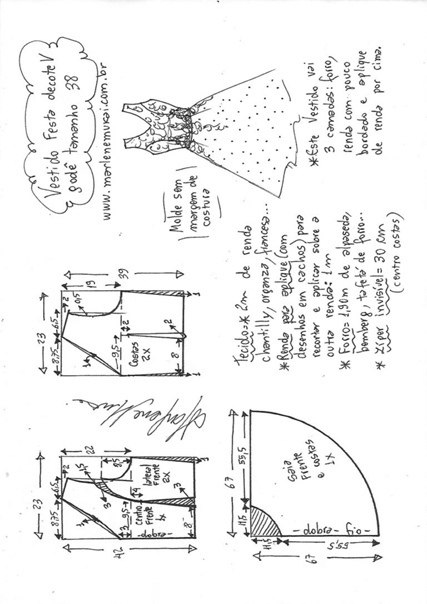 Vestido Festa decote V
godê tamanho 38
www.marlenemukai.com.br
Molde sem
margem de
costura
*Este Vestido vai
3 camadas: forro,
renda com pouco
bordado e aplique
de renda por cima.
Tecido=* 2m de renda
chantilly, organza, francesa...
*Renda para aplique (com
desenhos em cachos) para
recortar e aplicar sobre a
outra renda: 1m
* Forro= 1,90m de alpaseda,
bemberg, tafeta de forro...
* Ziper invisível= 30 cm
(centro costas)
23
8,75
6,5
2
4,5
19
39
3
9,5
2
2
Costas
2x
8
1
23
8,75
6,5
2
4,5
22
42
3
3
8,5
3
9,5
4
3
Centro
Frente
1x
lateral
Frente
2x
-dobra-
8
1
67
11,5
55,5
Saia
Frente
e costas
1x
-dobra-
-o.fio-
11,5
55,5
67